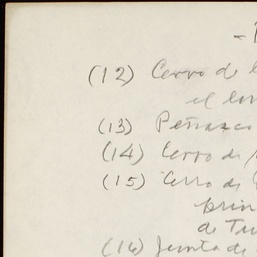 (12) Cerro de
el
(13) Peñasco
(14) Cerro de
(15) Cerro de
prin
de
(16) Junta de